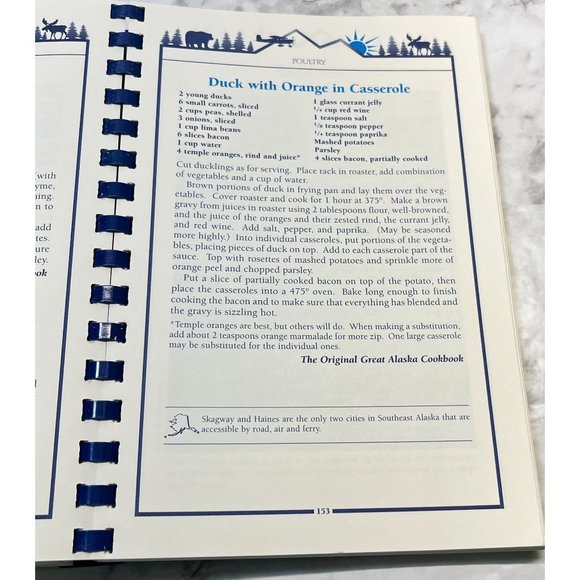 POULTRY
Duck with Orange in Casserole
2 young ducks
6 small carrots, sliced
2 cups peas, shelled
3 onions, sliced
1 cup lima beans
6 slices bacon
1 cup water
4 temple oranges, rind and juice*
1 glass currant jelly
1/4 cup red wine
1 teaspoon salt
1/8 teaspoon pepper
1/4 teaspoon paprika
Mashed potatoes
Parsley
4 slices bacon, partially cooked
Cut ducklings as for serving. Place rack in roaster, add combination
of vegetables and a cup of water.
Brown portions of duck in frying pan and lay them over the veg-
etables. Cover roaster and cook for 1 hour at 375°. Make a brown
gravy from juices in roaster using 2 tablespoons flour, well-browned,
and the juice of the oranges and their zested rind, the currant jelly,
and red wine. Add salt, pepper, and paprika. (May be seasoned
more highly.) Into individual casseroles, put portions of the vegeta-
bles, placing pieces of duck on top. Add to each casserole part of the
sauce. Top with rosettes of mashed potatoes and sprinkle more of
orange peel and chopped parsley.
Put a slice of partially cooked bacon on top of the potato, then
place the casseroles into a 475° oven. Bake long enough to finish
cooking the bacon and to make sure that everything has blended and
the gravy is sizzling hot.
*Temple oranges are best, but others will do. When making a substitution,
add about 2 teaspoons orange marmalade for more zip. One large casserole
may be substituted for the individual ones.
The Original Great Alaska Cookbook
Skagway and Haines are the only two cities in Southeast Alaska that are
accessible by road, air and ferry.
153
with
yme,
ning.
on to
add
tes.
ure
ley.
book